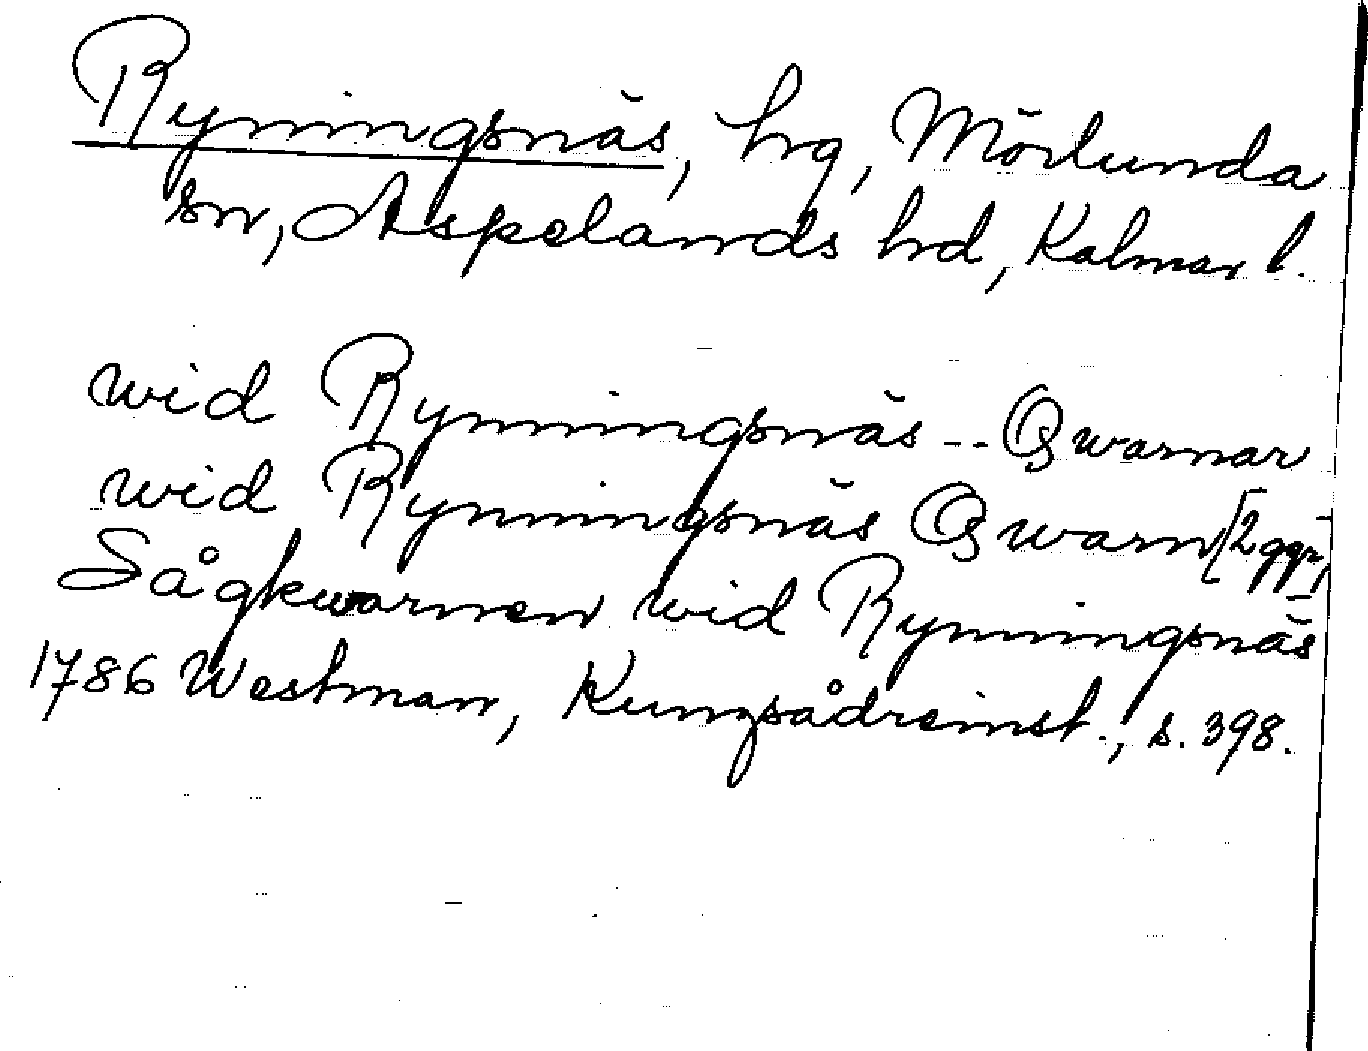 Ryningsnäs, hrg, Mörlunda
sn, Aspelands hd, Kalmar l.
wid Rynningsnäs -- Qwarnar
wid Rynningsnäs Qwarn [2 ggr]
Sågkwarnen wid Rynningsnäs
1786 Westman, Kungsådreinst., s. 398.